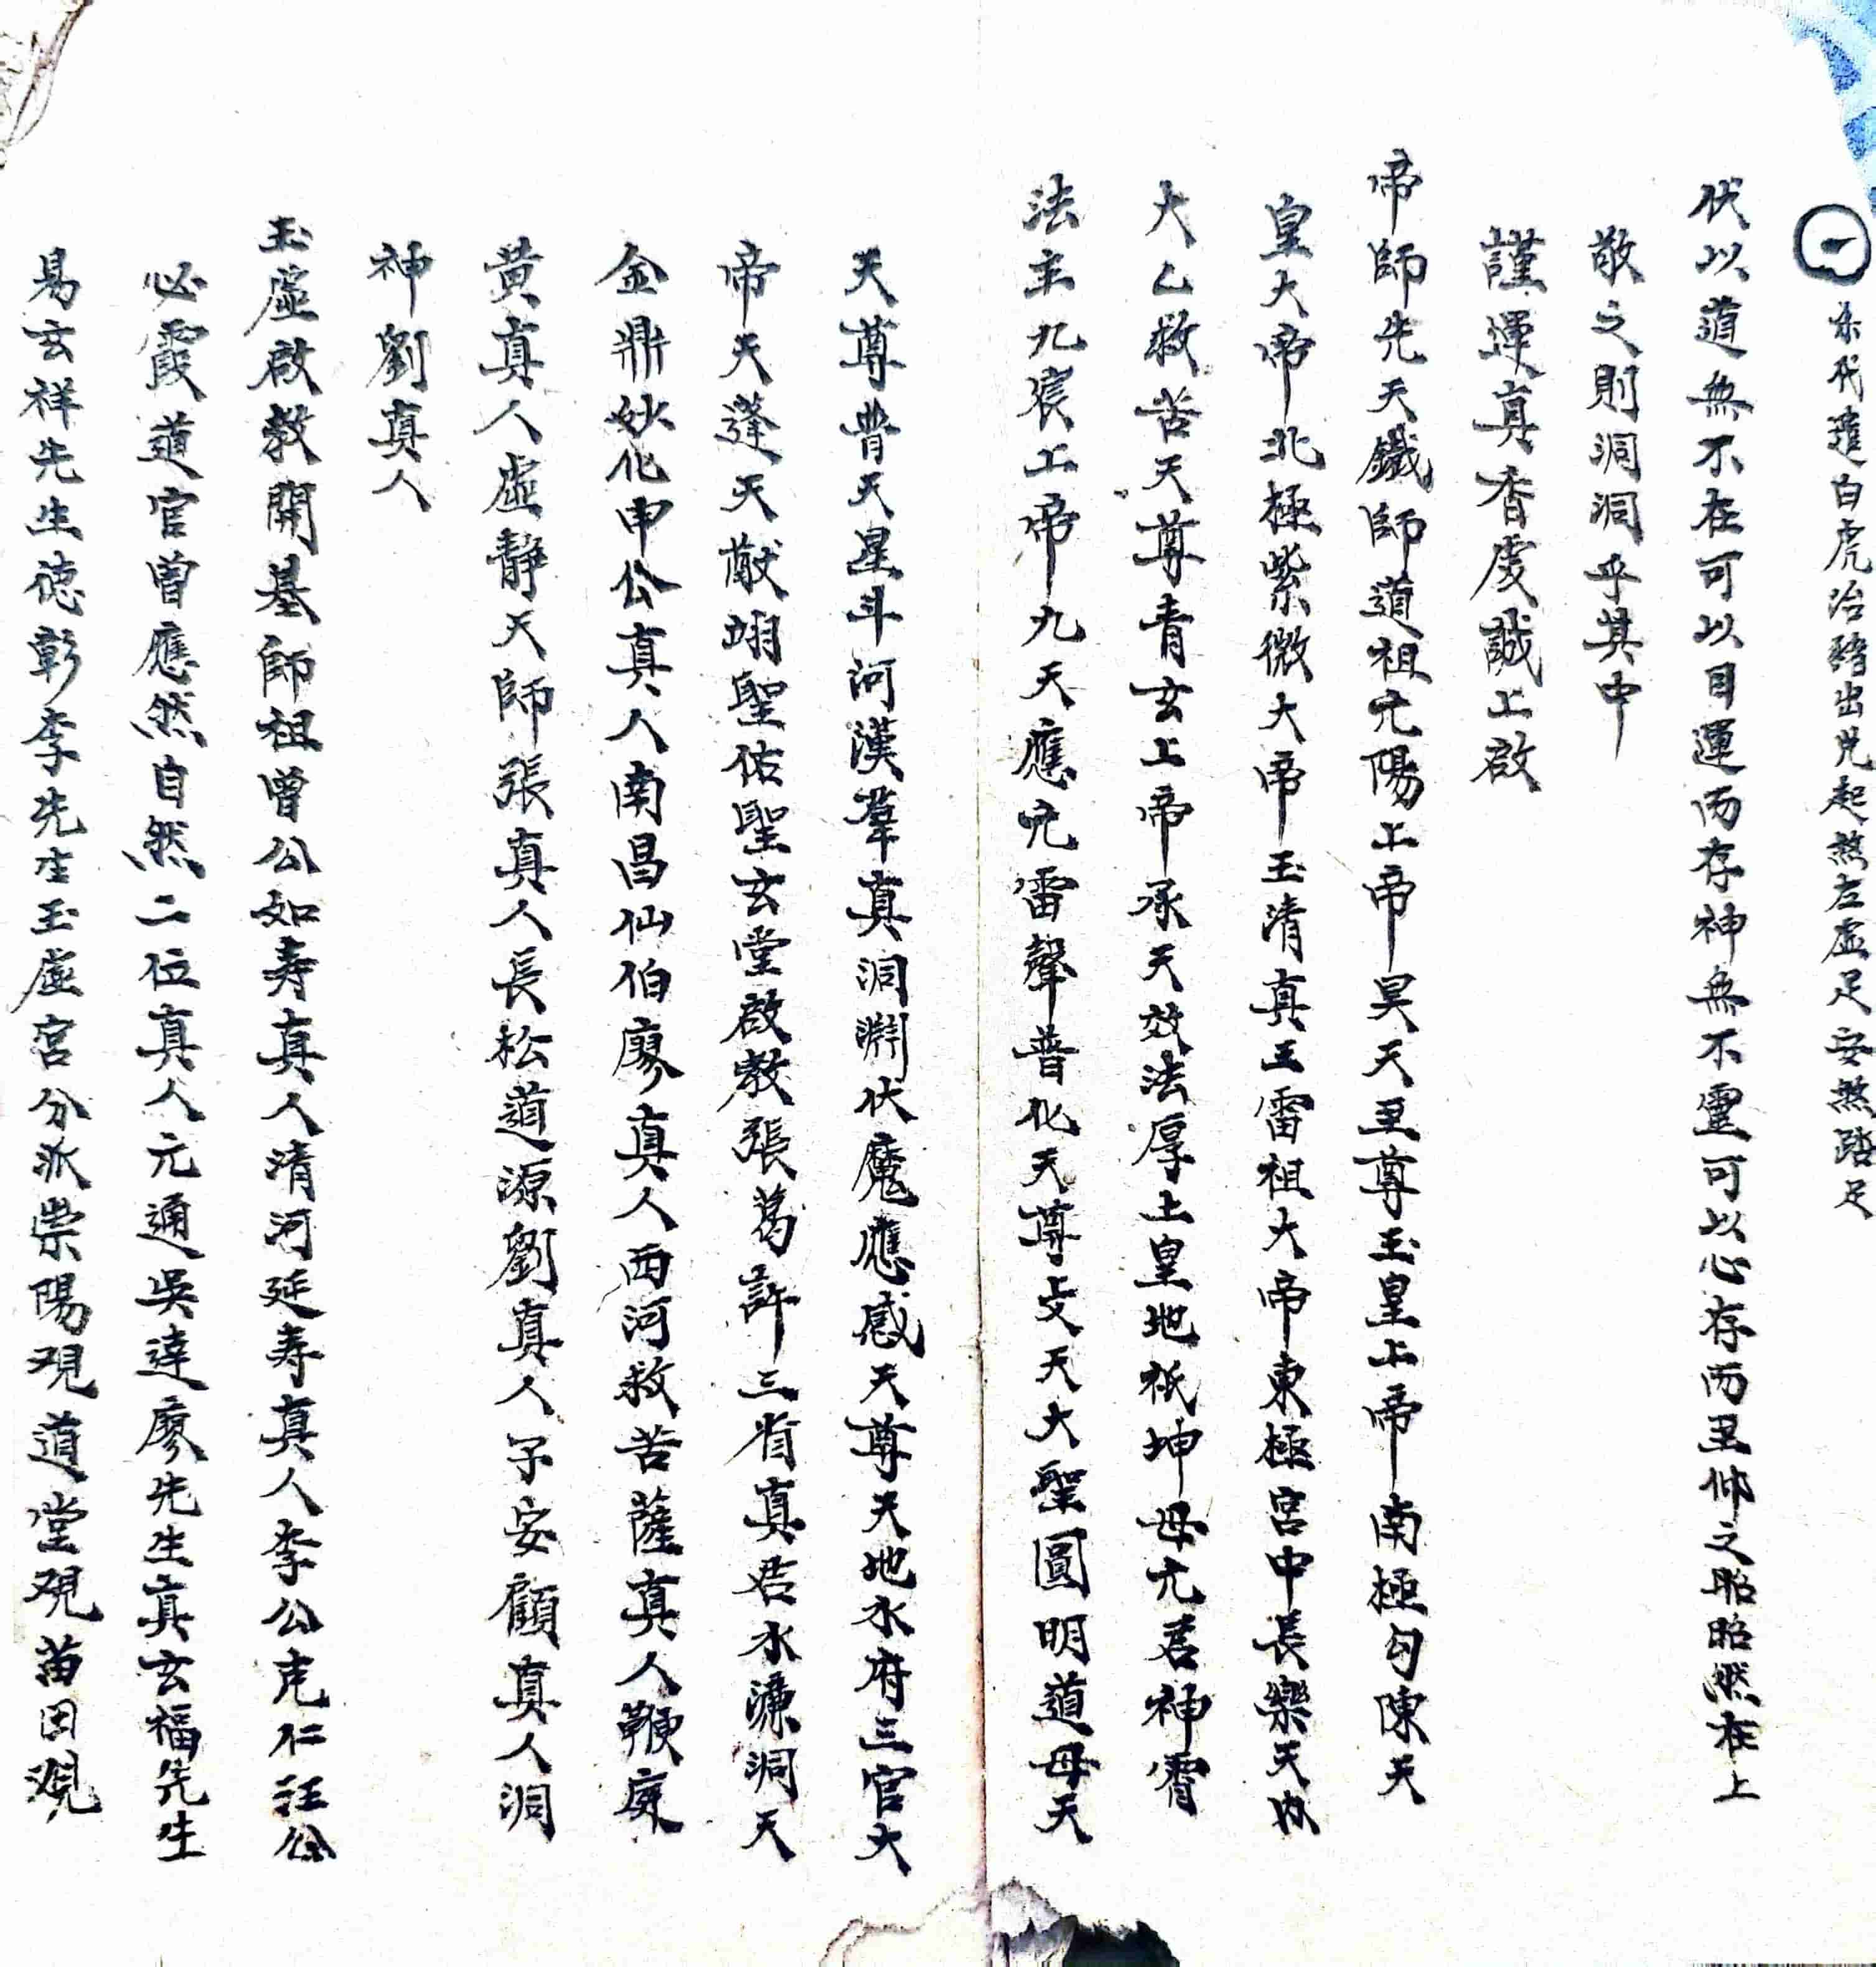 代進白虎治豬出兇起煞左虛足安煞踏足
伏以道無不在可以目運而存神無不靈可以心存而至仰之昭昭然在上
敬之則洞洞乎其中
謹運真香虔誠上啟
帝師先天鐵師道祖元陽上帝昊天至尊玉皇上帝南極勾陳天
皇大帝北極紫微大帝玉清真王雷祖大帝東極宮中長樂天內
大乙救苦天尊青玄上帝承天效法厚土皇地祇坤母元君神霄
法主九宸上帝九天應元雷聲普化天尊天大聖圓明道母天
天尊普天星斗河漢羣真洞淵伏魔應感天尊天地水府三官大
帝天蓬天猷翊聖佑聖玄堂啟教張葛許三省真君水濂洞天
金鼎妙化申公真人南昌仙伯廖真人西河救苦薩真人鞭庭
黄真人虛靜天師張真人長松道源劉真人子安顧真人洞
神劉真人
玉虛啟教開基師祖曾公如寿真人清河延寿真人李公克仁汪公
必霞道官曾應然自然二位真人元通吳達廖先生真玄福先生
易玄祥先生德彰李先生玉虛宮分派崇陽观道堂观苗田观